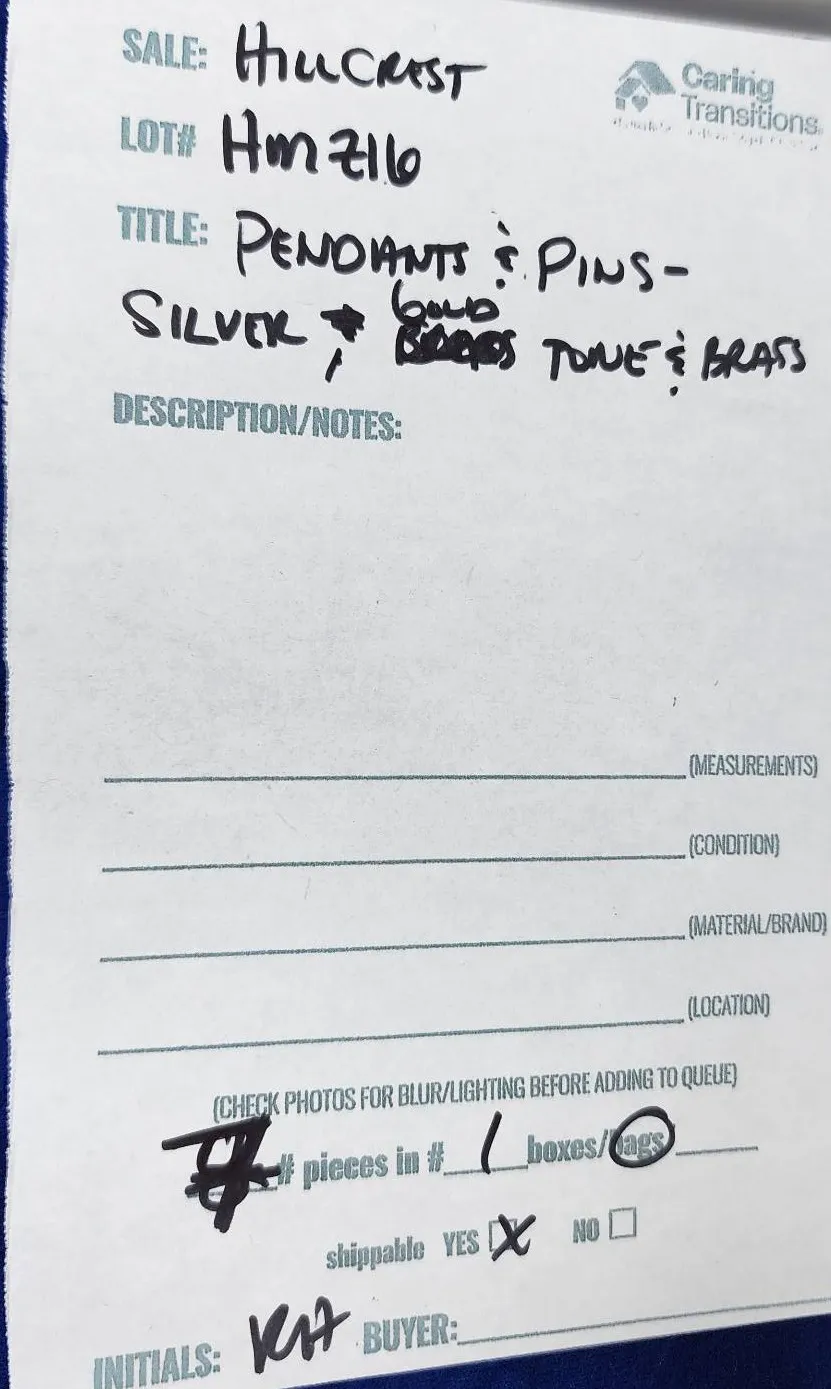 SALE: HILLCREST
Caring
Transitions
LOT# Hmz16
TITLE: PENDANTS & PINS -
SILVER, GOLD TONE & BRASS
DESCRIPTION/NOTES:
(MEASUREMENTS)
(CONDITION)
(MATERIAL/BRAND)
(LOCATION)
(CHECK PHOTOS FOR BLUR/LIGHTING BEFORE ADDING TO QUEUE)
# pieces in # 1 boxes/bags
shippable YES X NO
INITIALS: BUYER: